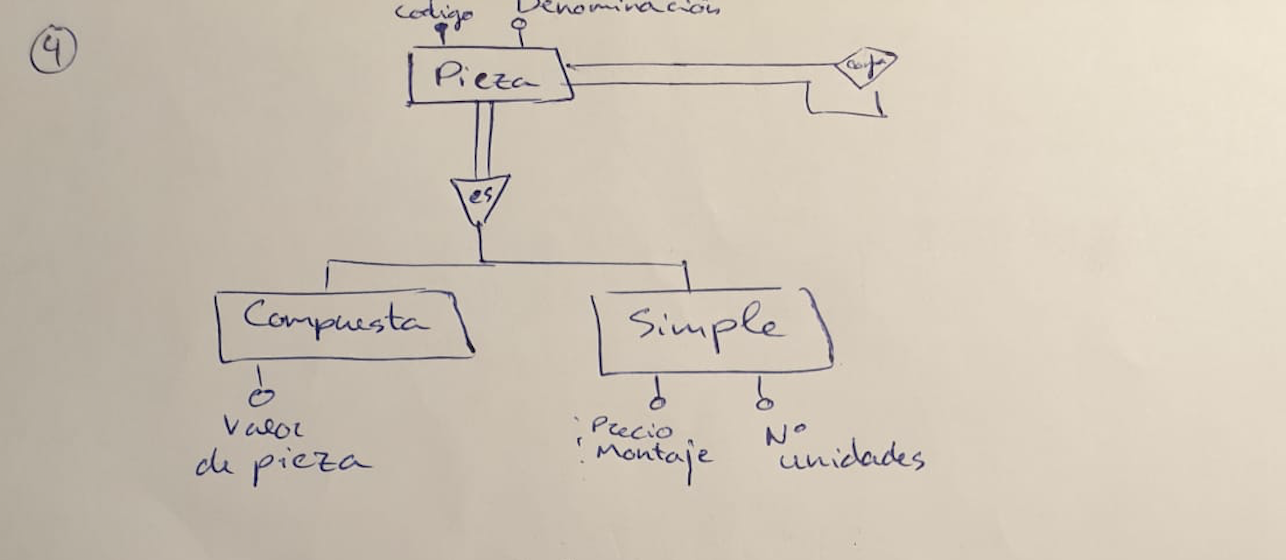 4
Codigo Denominación
Pieza
es
Compuesta Simple
Valor
de pieza
Precio
Montaje
Nº
unidades